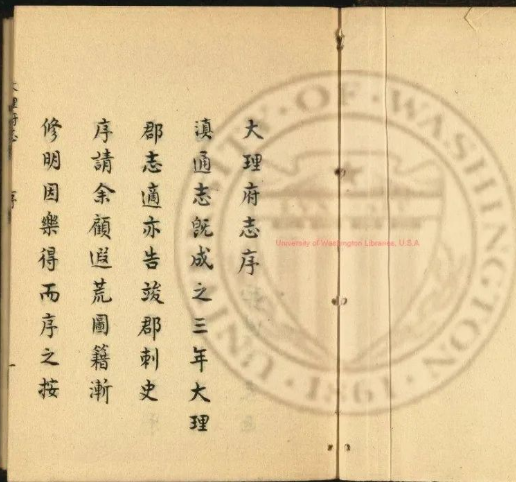 大理府志序
滇通志既成之三年大理
郡志適亦告竣郡刺史
序請余顧遐荒圖籍漸
修明因樂得而序之按
大理府志
序
一
University of Washington Libraries, U.S.A.
UNIVERSITY·OF·WASHINGTON
·1861·